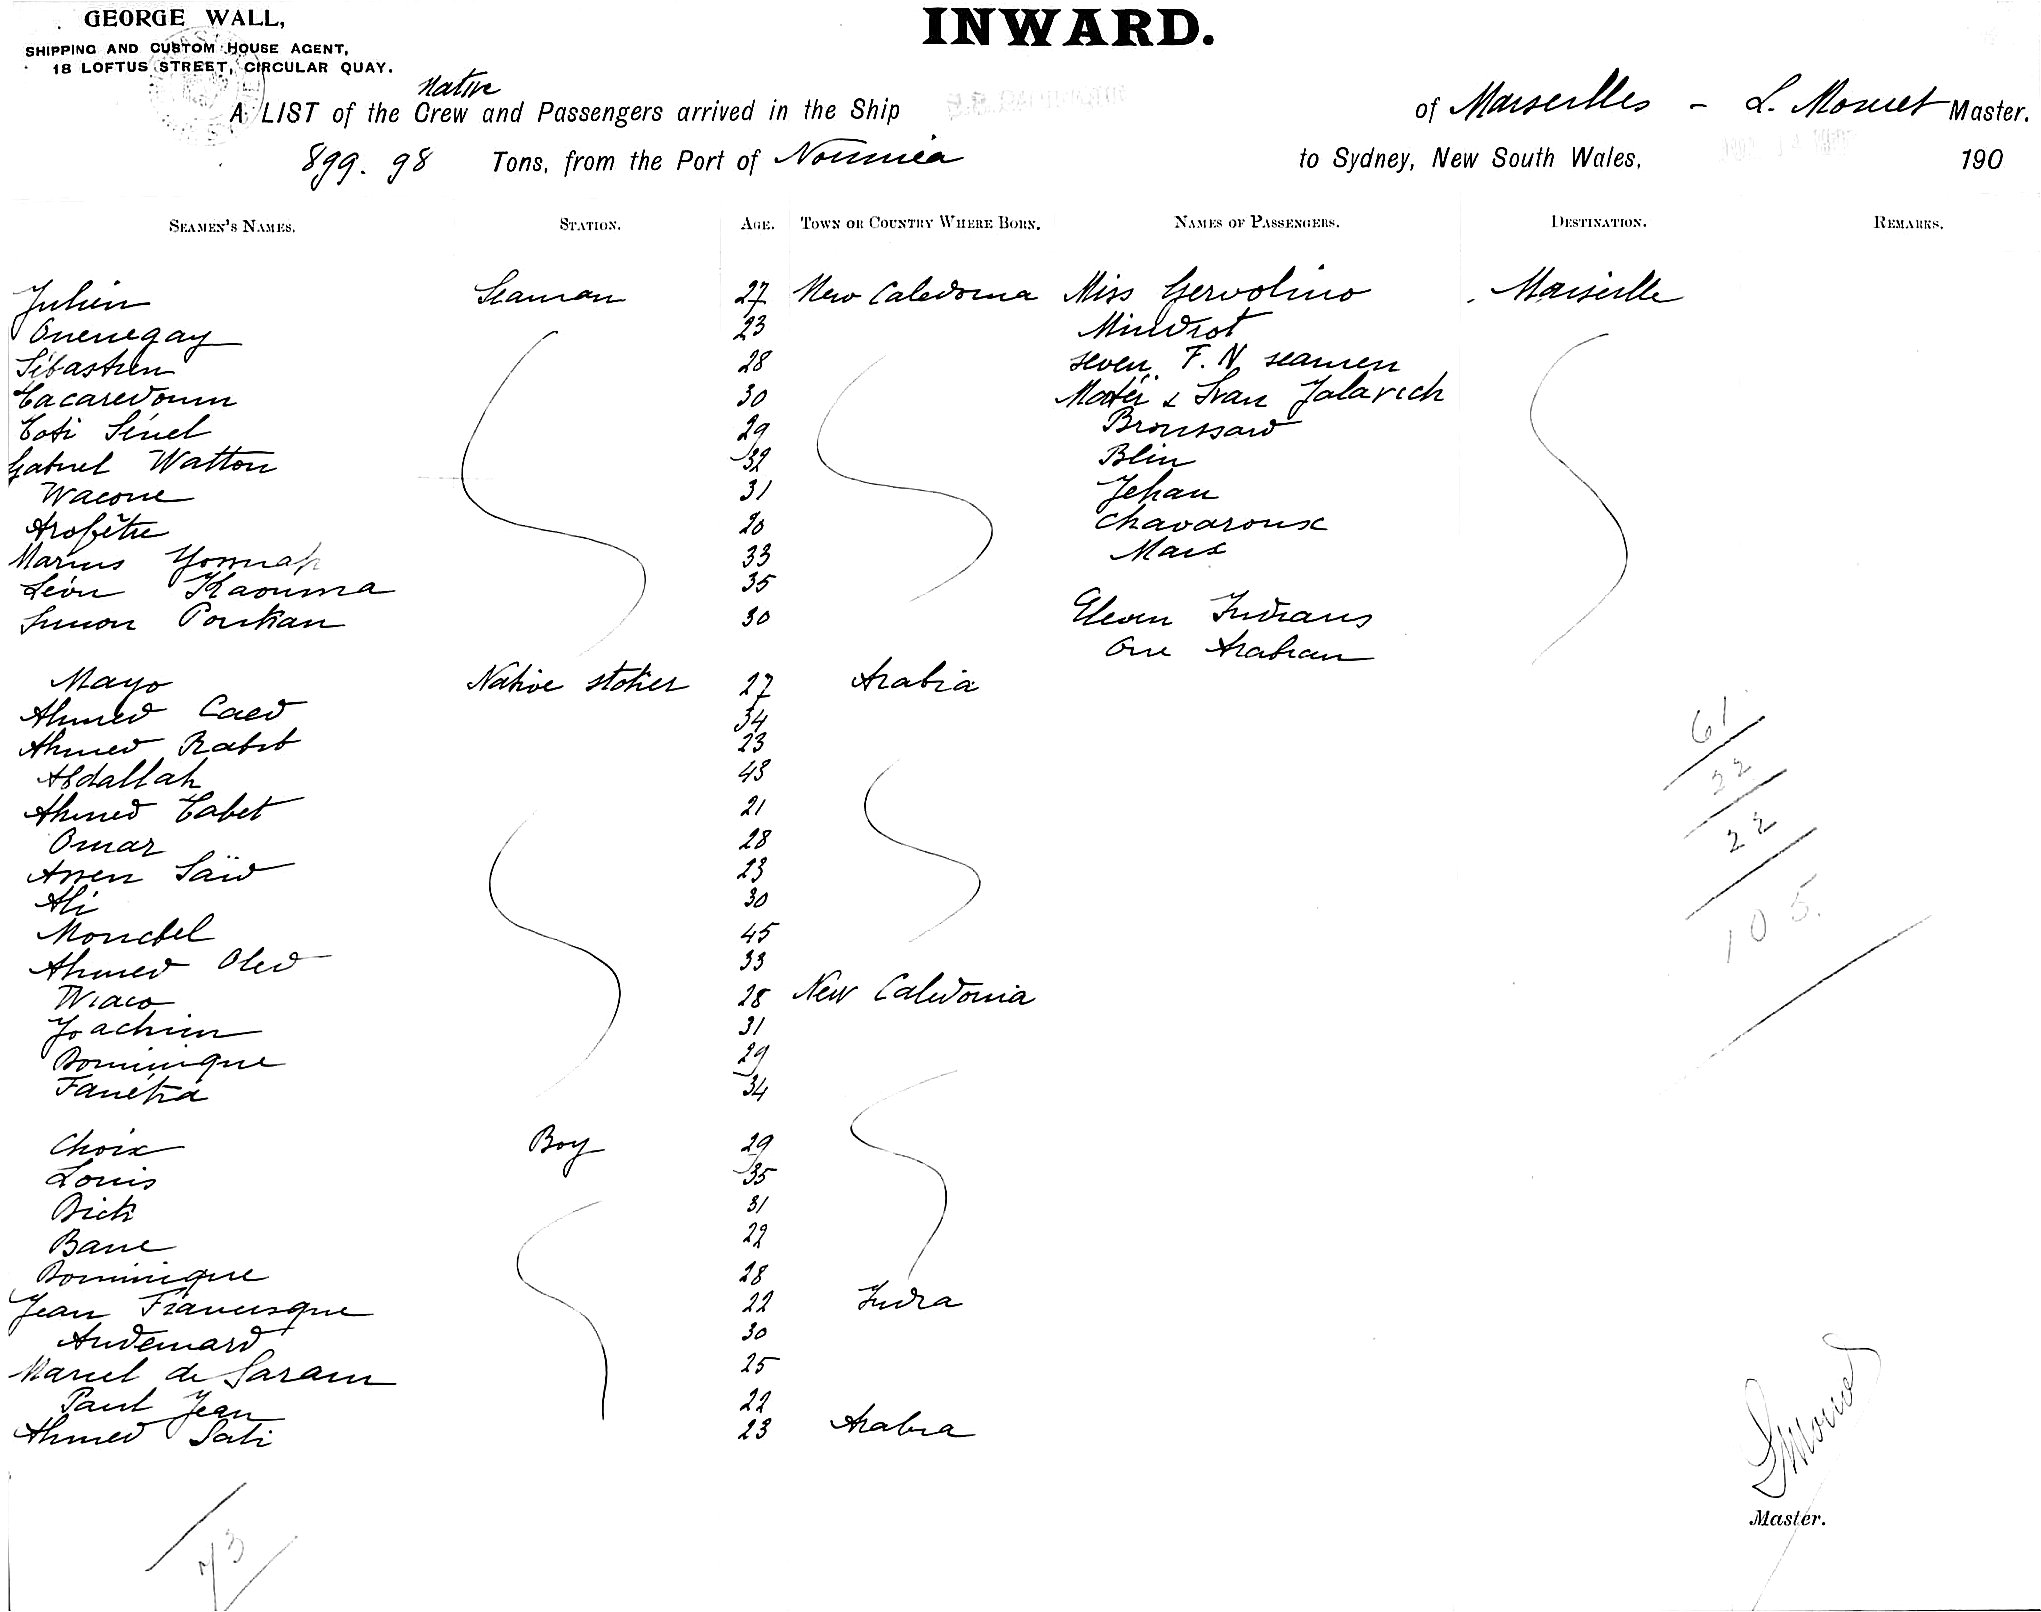 GEORGE WALL,
SHIPPING AND CUSTOM HOUSE AGENT,
18 LOFTUS STREET, CIRCULAR QUAY.
INWARD.
Native
A LIST of the Crew and Passengers arrived in the Ship of Marseilles - L. Master.
899.98 Tons, from the Port of Nouméa to Sydney, New South Wales, 190
SEAMEN'S NAMES. STATION. AGE. TOWN OR COUNTRY WHERE BORN. NAMES OF PASSENGERS. DESTINATION. REMARKS.
Julien Seaman 27 New Caledonia Miss Gervolino Marseille
Ouenegay 23 Mindrot
Sébastien 28 seven F.N seamen
Cacaredoum 30 & Ivan Jalavich
Toti Sinel 29 Broussard
Gabriel Watton 32 Blin
Wacone 31 Jehan
Arofétu 20 Chavaroux
Marius 33 Marx
Léon Kaouma 35
Simon Pourkau 30 Eleven Indians
One Arabian
Mayo Native stoker 27 Arabia
Ahmed Caed 34
Ahmed Rabit 23
Abdallah 43
Ahmed Tabet 21
Omar 28
Assen Saïd 23
Ali 30
Moucbel 45
Ahmed Oled 33
Wiaco 28 New Caledonia
Joachim 31
Dominique 29
Fanétia 34
Choix Boy 29
Louis 35
Dick 31
Bane 22
Dominique 28
Jean Francisque 22 India
Audemard 30
Marcel de Saram 25
Paul Jean 22
Ahmed Sati 23 Arabia
61
22
22
105.
73
Master.